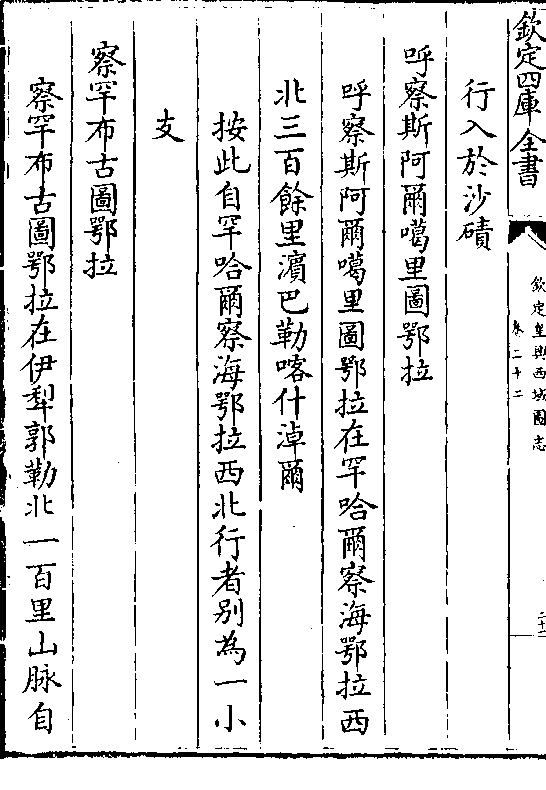 欽定四庫全書
欽定皇輿西域圖志
卷二十二
二十二
行入於沙磧
呼察斯阿爾噶里圖鄂拉
呼察斯阿爾噶里圖鄂拉在罕哈爾察海鄂拉西
北三百餘里濵巴勒喀什淖爾
按此自罕哈爾察海鄂拉西北行者别為一小
支
察罕布古圖鄂拉
察罕布古圖鄂拉在伊犂郭勒北一百里山脉自